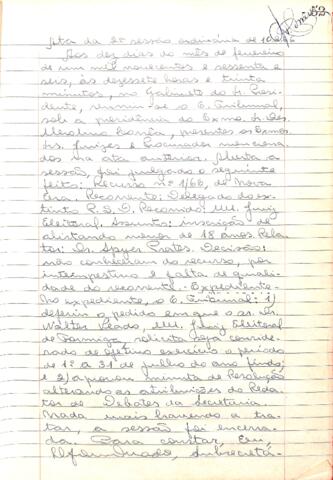 Ata da 2ª sessão ordinária de 10-2-66
Aos dez dias do mês de fevereiro
de um mil novecentos e sessenta e
seis, às dezessete horas e trinta
minutos, no Gabinete do Sr. Presi-
dente, reuniu-se o E. Tribunal,
sob a presidência do Exmo. Sr. Des.
Merolino Corrêa, presentes os Exmos.
Srs. Juízes e Procurador menciona-
dos na ata anterior. Aberta a
sessão, foi julgado o seguinte
feito: Recurso nº 1/66, de Nova
Era. Recorrente: Delegado do ex-
tinto P.S.D. Recorrido: MM. Juiz
Eleitoral. Assunto: inscrição de
alistando menor de 18 anos. Rela-
tor: Dr. Prates. Decisão:
não conheceram do recurso, por
intempestivo e falta de quali-
dade do recorrente. Expediente.
No expediente, o E. Tribunal: 1)
deferiu o pedido em que o sr. Dr.
Walter Veado, MM. Juiz Eleitoral
de Formiga, solicita seja conside-
rado de efetivo exercício o período
de 1º a 31 de julho do ano findo;
e 2) aprovou minuta de Resolução
alterando as atribuições do Reda-
tor de Debates da Secretaria.
Nada mais havendo a tra-
tar, a sessão foi encerra-
da. Para constar, Eu,
subsecretá-